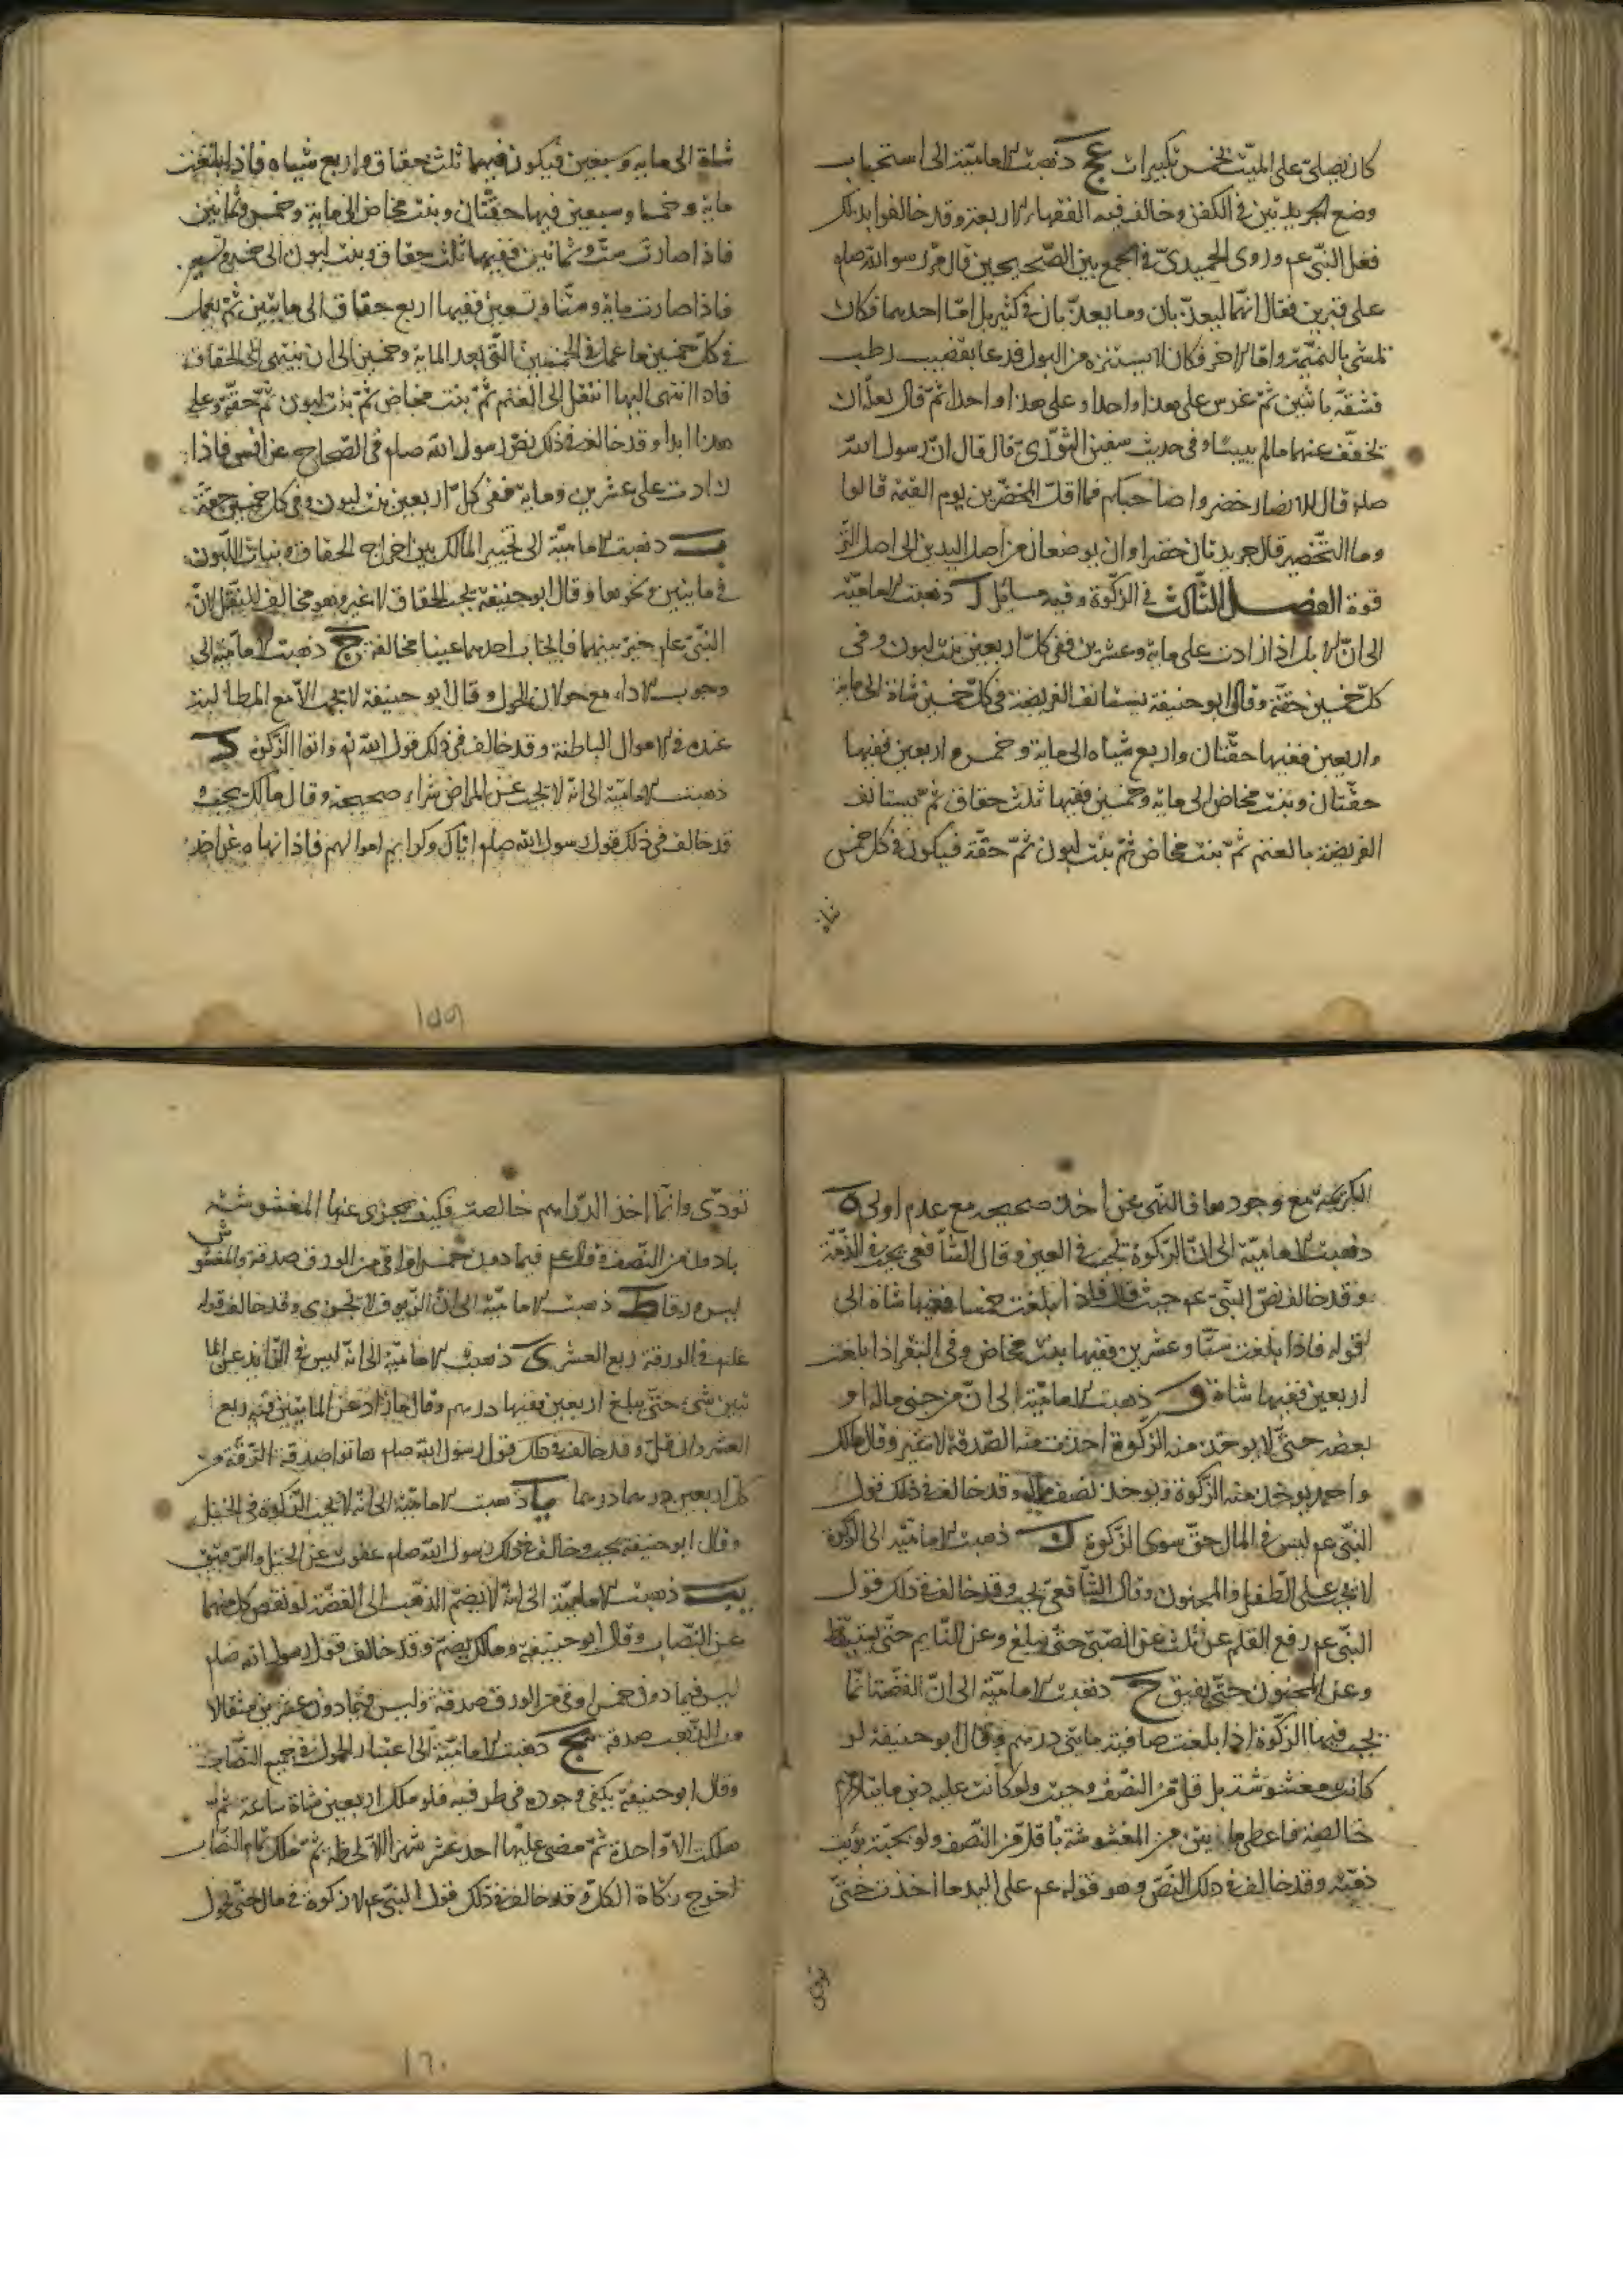 كان يصلي على الميّت بخمس تكبيرات عج ذهبت الامامية الى استحباب
وضع الجريدتين في الكفن وخالف فيه الفقهاء الاربعة وقد خالفوا بذلك
فعل النبي عم وروى الحميدي في الجمع بين الصحيحين قال مرّ رسول الله صلم
على قبرين فقال انهما ليعذبان وما يعذبان في كثير بل امّا احدهما فكان
يمشي بالنميمة وامّا الاخر فكان لا يستنزه من البول فدعا بقضيب رطب
فشقّه باثنين ثمّ غرس على هذا واحدا وعلى هذا واحدا ثمّ قال لعلّه ان
يخفّف عنهما ما لم ييبسا وفي حديث سفين الثوري قال قال انّ رسول الله
صلم قال للانصار خضروا صاحبكم فما اقلّ المخضّرين يوم القيمة قالوا
وما التخضير قال جريدتان خضراوان يوضعان من اصل اليدين الى اصل التر
قوة الفصل الثالث في الزكوة وفيه مسائل ا ذهبت الامامية
الى انّ الابل اذا زادت على ماية وعشرين ففي كل اربعين بنت لبون وفي
كلّ خمسين حقّة وقال ابو حنيفة يستانف الفريضة في كلّ خمس شاة الى ماية
واربعين ففيها حقّتان واربع شياه الى ماية وخمس واربعين ففيها
حقّتان وبنت مخاض الى ماية وخمسين ففيها ثلث حقاق ثمّ يستانف
الفريضة بالغنم ثمّ بنت مخاض ثمّ بنت لبون ثمّ حقّة فيكون في كل خمس
شاة
شاة الى ماية وسبعين فيكون فيها ثلث حقاق واربع شياه فاذا بلغت
ماية وخمسا وسبعين فيها حقّتان وبنت مخاض الى ماية وخمس وثمانين
فاذا صارت ستّ وثمانين ففيها ثلث حقاق وبنت لبون الى خمس وتسعين
فاذا صارت ماية وستّا وتسعين ففيها اربع حقاق الى مايتين ثمّ يعمل
في كلّ خمسين ما عمل في الخمسين التي بعد الماية وخمسين الى ان ينتهى الى الحقاق
فاذا انتهى اليها انتقل الى الغنم ثمّ بنت مخاض ثمّ بنت لبون ثمّ حقّة وعلى
هذا ابدا وقد خالف في ذلك نصّ رسول الله صلم في الصحاح عن انس فاذا
زادت على عشرين وماية ففي كلّ اربعين بنت لبون وفي كل خمسين حقّة
ب ذهبت الامامية الى تخيير المالك بين اخراج الحقاق وبنات اللبون
في مايتين ونحوها وقال ابو حنيفة يجب الحقاق لا غير وهو مخالف للنقل لانّ
النبي علم خيّر بينهما فايجاب احدهما عينا مخالفة ج ذهبت الامامية الى
وجوب الاداء مع حولان الحول وقال ابو حنيفة لا تجب الا مع المطالبة
عنده في الاموال الباطنة وقد خالف في ذلك قول الله تع واتوا الزكوة د
ذهبت الامامية الى انه لا تجب عن المراض شراء صحيحة وقال مالك يجب و
قد خالف في ذلك قول رسول الله صلم اياك وكرايم اموالهم فاذا نهاه عن اخذ
١٥٩
الكريمة مع وجودها فالنهي عن اخذ صحيحة مع عدم اولى ه
ذهبت الامامية الى انّ الزكوة تجب في العين وقال الشافعي يجب في الذمّة
وقد خالف نصّ النبي عم حيث قال فاذا بلغت خمسا ففيها شاة الى
قوله فاذا بلغت ستّا وعشرين ففيها بنت مخاض وفي البقر اذا بلغت
اربعين ففيها شاة و ذهبت الامامية الى انّ من خبى ماله او
بعضه حتّى لا يوخذ منه الزكوة اخذت منه الصدقة لا غير وقال مالك
واحمد يوخذ منه الزكوة ويوخذ نصف ماله وقد خالف في ذلك قول
النبي عم ليس في المال حقّ سوى الزكوة ز ذهبت الامامية الى الزكوة
لا تجب على الطفل والمجنون وقال الشافعي يجب وقد خالف في ذلك قول
النبي عم رفع القلم عن ثلث عن الصبي حتّى يبلغ وعن النايم حتّى يستيقظ
وعن المجنون حتّى يفيق ح ذهبت الامامية الى انّ الفضّة انّما
تجب فيها الزكوة اذا بلغت صافية مايتى درهم وقال ابو حنيفة لو
كانت مغشوشة بل قل من النصف وجبت ولو كانت عليه دين مايتا درهم
خالصة فاعطى مايتين من المغشوشة باقل من النصف ولو بحبّة برئت
ذمّته وقد خالف في ذلك النصّ وهو قوله عم على اليد ما اخذت حتّى
تودى
تودّى وانّما اخذ الدراهم خالصة وكيف يجزى عنها المغشوشة
بادون من النصف وقال عم فيما دون خمس اواق من الورق صدقة والمغشو
ش
ليس ورقا ط ذهبت الامامية الى انّ الزيوف لا تجزى وقد خالف قوله
علم في الورقة ربع العشر ى ذهبت الامامية الى انّه ليس في الزايد على الما
يتين شيء حتّى يبلغ اربعين ففيها درهم وقال ما زاد عن المايتين فيه ربع
العشر وان قلّ وقد خالف في ذلك قول رسول الله صلم هاتوا صدقة الرقة من
كل اربعين درهما درهما يا ذهبت الامامية الى انه لا تجب الزكوة في الخيل
وقال ابو حنيفة يجب وخالف في ذلك رسول الله صلم عفوت عن الخيل والرقيق
يب ذهبت الامامية الى انّه لا يضمّ الذهب الى الفضّة لو نقص كل منهما
عن النصاب وقال ابو حنيفة ومالك يضمّ وقد خالف قول رسول الله صلم
ليس فيما دون خمس اوق من الورق صدقة وليس فيما دون عشرين مثقالا
من الذهب صدقة يج ذهبت الامامية الى اعتبار الحول في جميع النصاب
وقال ابو حنيفة يكفى وجوده في طرفيه فلو ملك اربعين شاة ساعة ثم
هلكت الا واحدة ثمّ مضى عليها احد عشر شهرا الا لحظة ثمّ ملك تمام النصاب
اخرج زكاة الكل وقد خالف في ذلك قول النبي عم لا زكوة في مال حتّى يحول
١٦٠